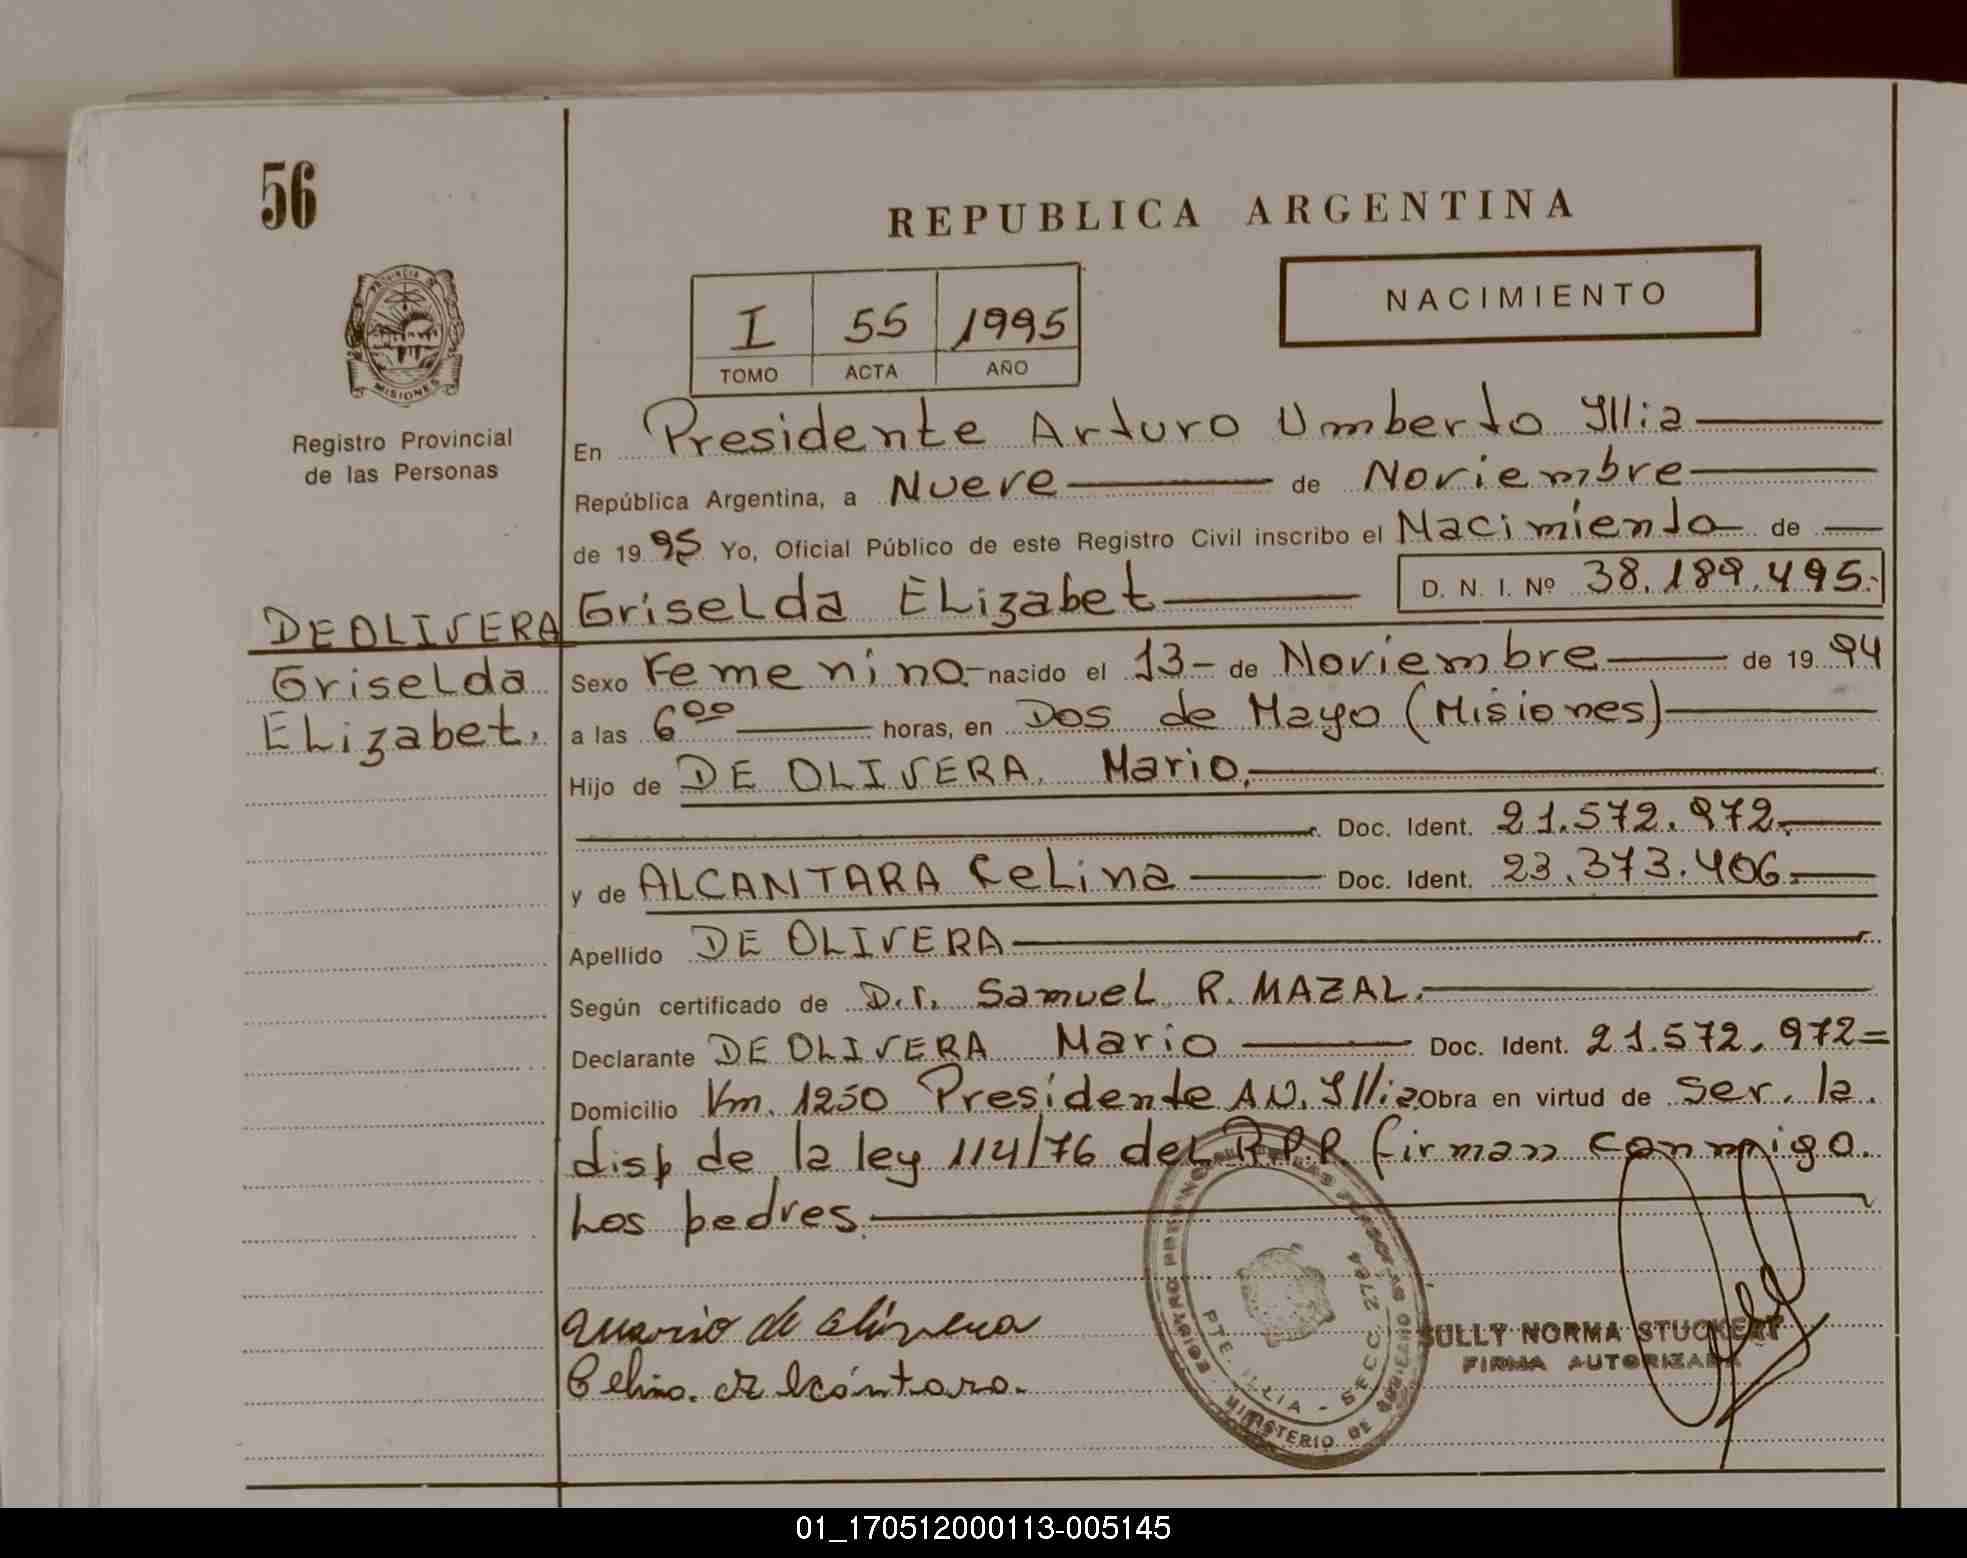 56
REPUBLICA ARGENTINA
NACIMIENTO
I 55 1995
TOMO ACTA AÑO
PROVINCIA DE MISIONES
Registro Provincial
de las Personas
En Presidente Arturo Umberto Yllia
República Argentina, a Nueve de Noviembre
de 1995 Yo, Oficial Público de este Registro Civil inscribo el Nacimiento de
DE OLIVERA Griselda ELizabet D. N. I. Nº 38.189.495.-
Griselda
ELizabet.
Sexo Femenino.- nacido el 13- de Noviembre de 1994
a las 6 00 horas, en Dos de Mayo (Misiones)
Hijo de DE OLIVERA, Mario.
Doc. Ident. 21.572.972.
y de ALCANTARA CeLina Doc. Ident. 23.373.406.
Apellido DE OLIVERA
Según certificado de D.r. SamueL R. MAZAL.
Declarante DE OLIVERA Mario Doc. Ident. 21.572.972=
Domicilio Km. 1250 Presidente A.U. Yllia Obra en virtud de ser. la.
disp de la ley 114/76 deL R.P.P. firman conmigo.
Los padres.
Mario de Olivera
Celina. de Alcántara.
REGISTRO PROVINCIAL DE LAS PERSONAS
PTE. ILLIA - SECC. 2764
MINISTERIO DE GOBIERNO
SULLY NORMA STUCKERT
FIRMA AUTORIZADA
01_170512000113-005145